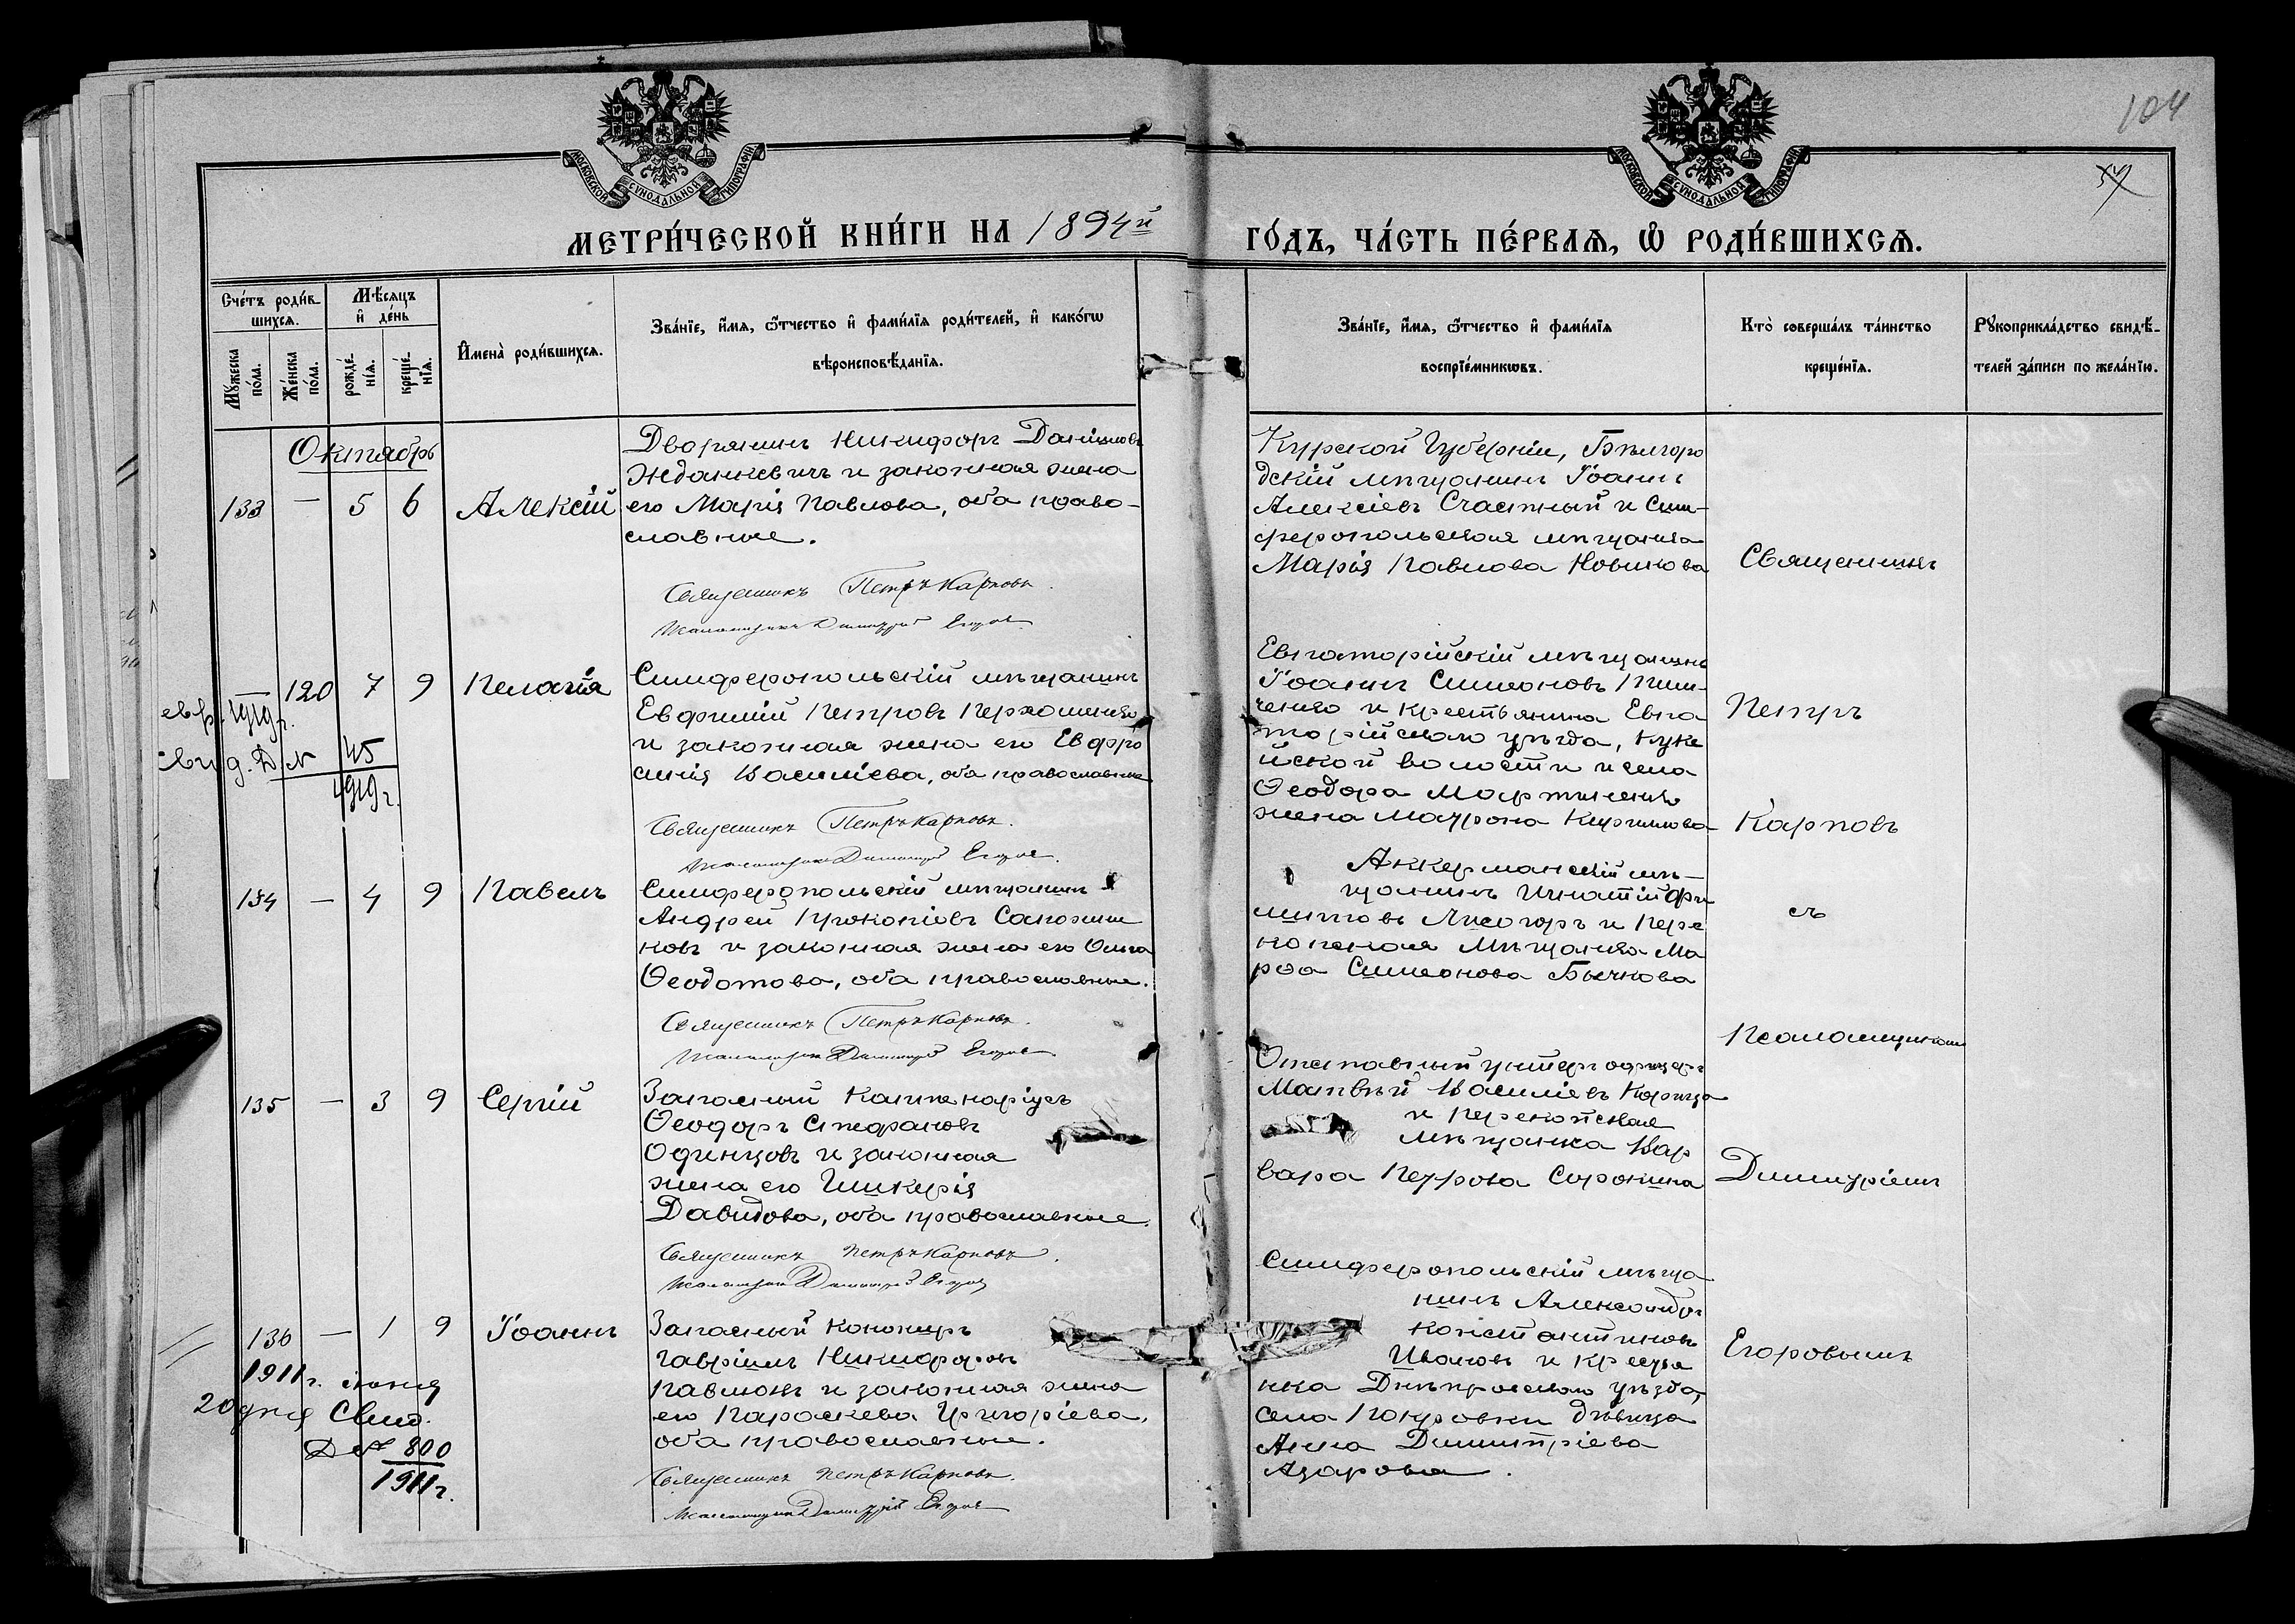 104
54
МОСКОВСКОЙ СѴНОДАЛЬНОЙ ТИПОГРАФІИ
МОСКОВСКОЙ СѴНОДАЛЬНОЙ ТИПОГРАФІИ
МЕТРИ́ЧЕСКОЙ КНИ́ГИ НА 1894й
ГО́ДЪ, ЧА́СТЬ ПЕ́РВАЯ, Ѡ҆ РОДИ́ВШИХСЯ.
Сче́тъ роди́в-
шихся.
Мѣ́сяцъ
и҆ де́нь
Мꙋ́жеска по́ла.
Же́нска по́ла.
рожде́-нія.
креще́-нія.
И҆мена̀ роди́вшихся.
Зва́нїе, и҆́мя, ѻ҆́тчество и҆ фами́лїя роди́телей, и҆ како́гѡ
вѣроисповѣ́данїя.
Зва́нїе, и҆́мя, ѻ҆́тчество и҆ фами́лїя
воспрїе́мникѡвъ.
Кто̀ соверша́лъ та́инство
креще́нїя.
Рꙋкоприкла́дство свидѣ́-
телей за́писи по жела́нїю.
Октябрь
133 — 5 6 Алексій
Дворянинъ Никифоръ Даніиловъ
Жданкевичъ и законная жена
его Марія Павлова, оба право-
славные.
Священникъ Петръ Карповъ.
Псаломщикъ Димитрій Егоровъ
Курской Губерніи, Бѣлгоро
дскій мѣщанинъ Іоаннъ
Алексіевъ Счастный и Сим-
феропольская мѣщанка
Марія Павлова Новикова
Священникъ
— 120 7 9 Пелагія
1919 г.
свид. Д. №
45
1919 г.
Симферопольскій мѣщанинъ
Евфимій Петровъ
и законная жена его Евфро
синія Василіева, оба православные
Священникъ Петръ Карповъ.
Псаломщикъ Димитрій Егоровъ.
Евпаторійскій мѣщанинъ
Іоаннъ Симеоновъ
и крестьянина Евпа
торійскаго уѣзда,
йской волости и села
Ѳеодора Мартыненко
жена Матрона Кириллова
Петръ
Карповъ
134 — 4 9 Павелъ
Симферопольскій мѣщанинъ
Андрей Прокопіевъ Сапожни
ковъ и законная жена его Ольга
Ѳеодотова, оба православные.
Священникъ Петръ Карповъ.
Псаломщикъ Димитрій Егоровъ
Аккерманскій мѣ-
щанинъ Игнатій Фи
липповъ Лисогоръ и Пере
копская мѣщанка Ма
рѳа Симеонова Бычкова
съ
Псаломщикомъ
135 — 3 9 Сергій
Запасный Каптенармусъ
Ѳеодоръ Стефановъ
Одинцовъ и законная
жена его Гликерія
Давидова, оба православные.
Священникъ Петръ Карповъ.
Псаломщикъ Димитрій Егоровъ
Отставный унтеръ офицеръ
Матвѣй Василіевъ
и Перекопская
мѣщанка Вар
вара Петрова Сорокина
Димитріемъ
136 — 1 9 Іоаннъ
1911 г. іюня
20 дня Свид.
Д № 800
1911 г.
Запасный канониръ
Гавріилъ Никифоровъ
Павловъ и законная жена
его Параскева Григоріева,
оба православные.
Священникъ Петръ Карповъ.
Псаломщикъ Димитрій Егоровъ
Симферопольскій мѣща
нинъ Александръ
Константиновъ
Ивановъ и крестья
нка Днѣпровскаго уѣзда,
села Покровки дѣвица
Анна Димитріева
Азарова.
Егоровымъ